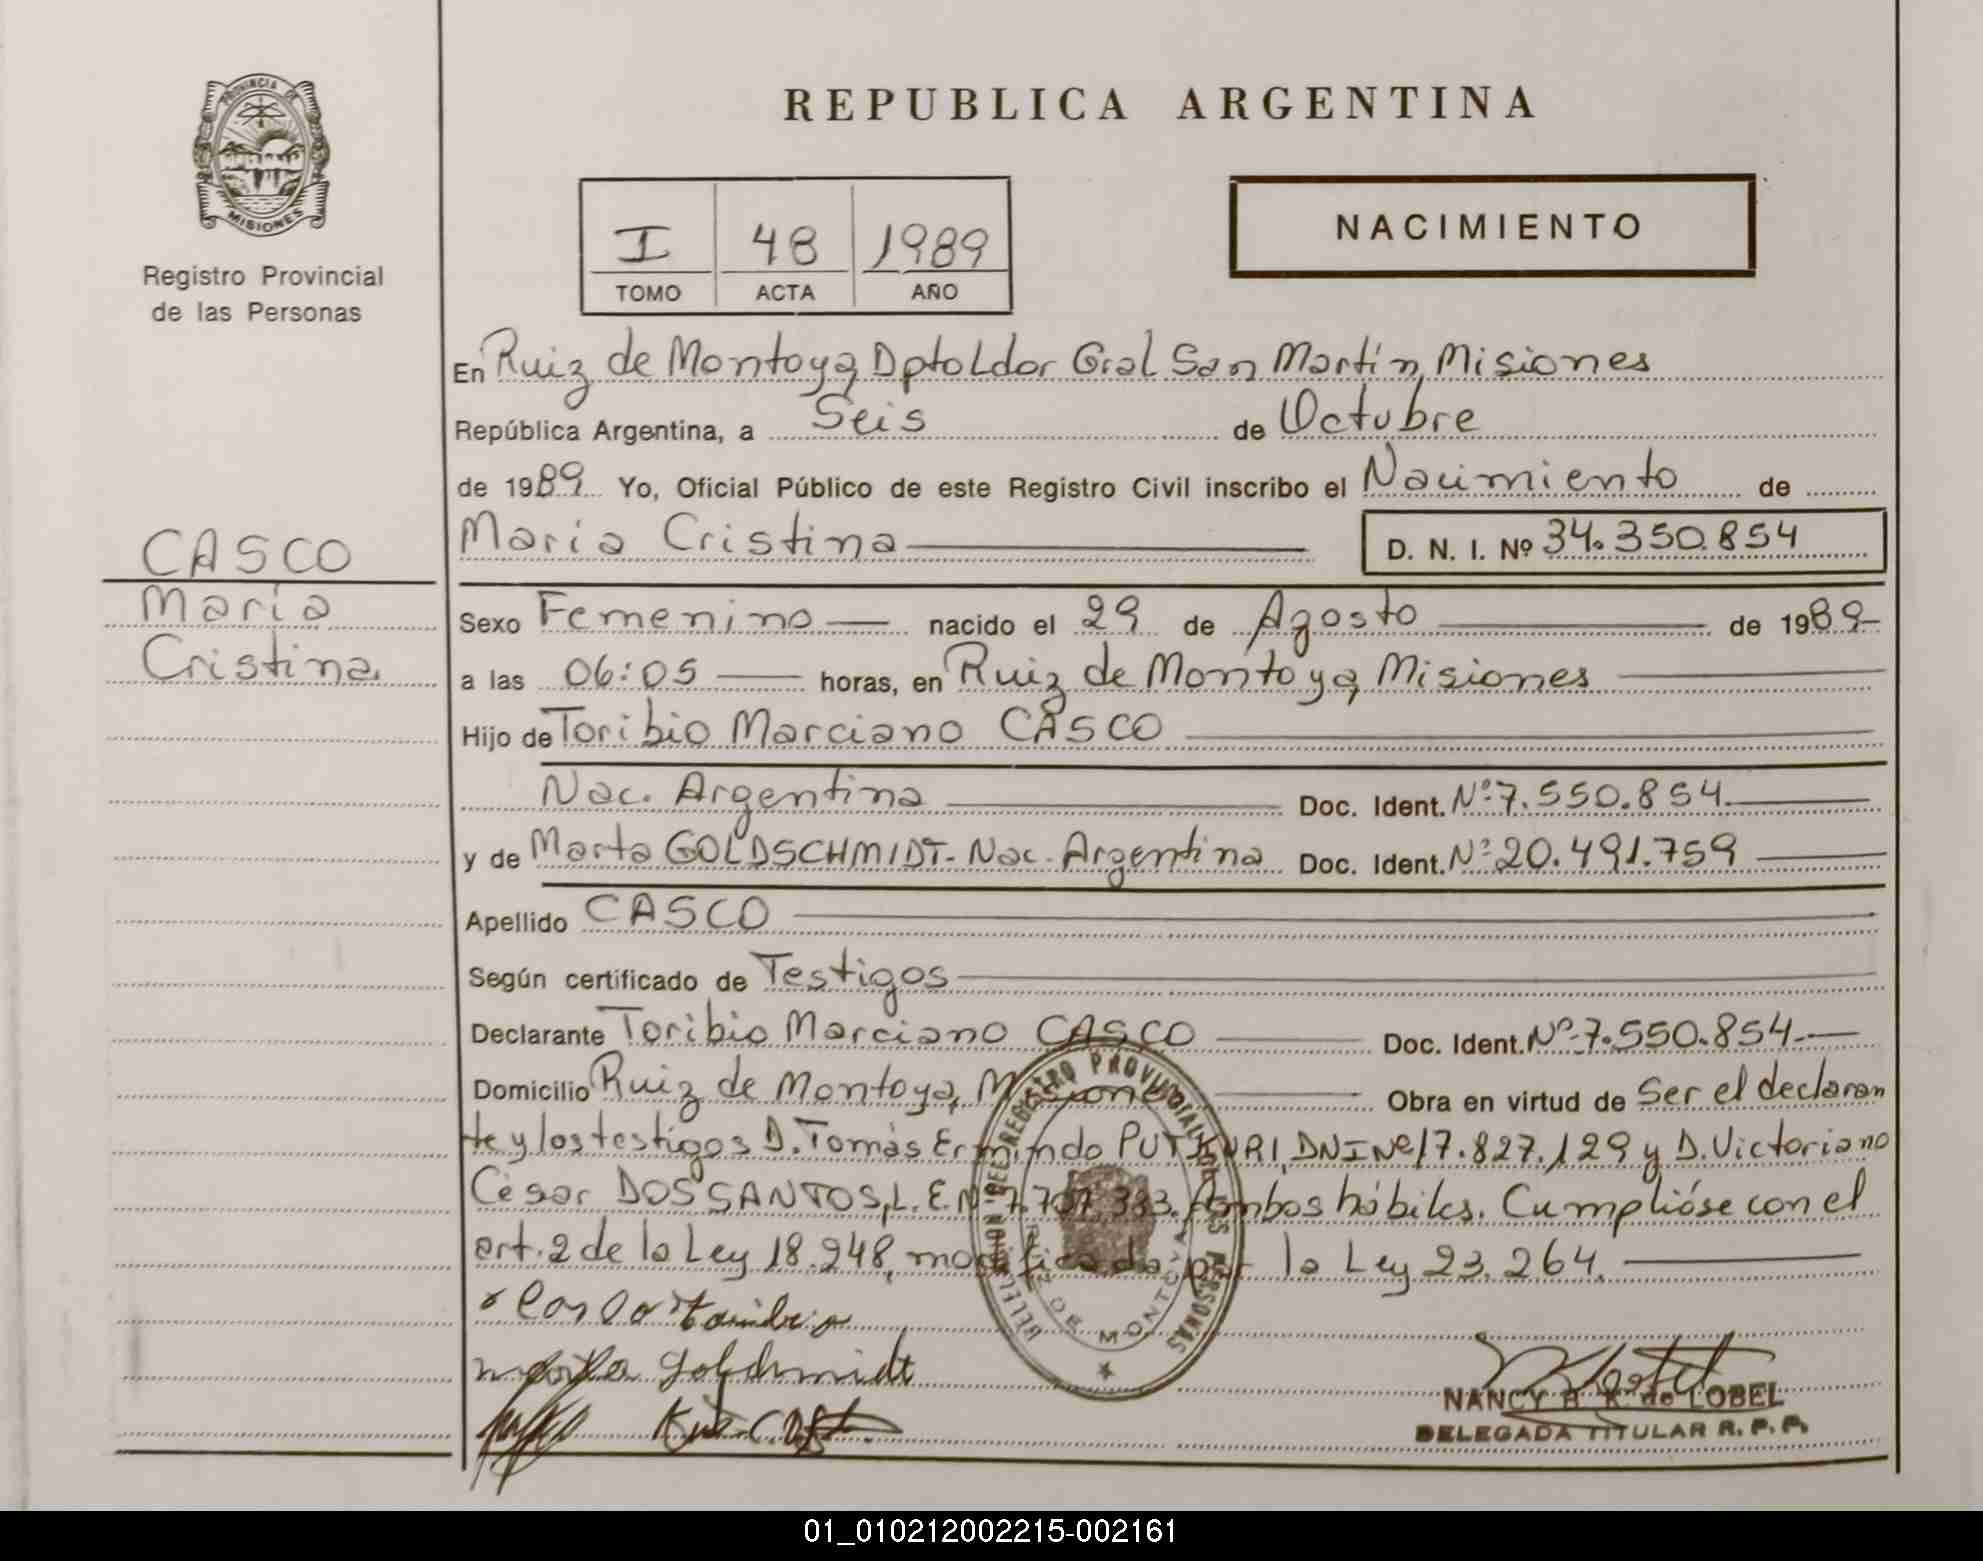 PROVINCIA DE
MISIONES
Registro Provincial
de las Personas
REPUBLICA ARGENTINA
I 48 1989
TOMO ACTA AÑO
NACIMIENTO
En Ruiz de Montoya, Dpto Ldor Gral San Martín, Misiones
República Argentina, a Seis de Octubre
de 1989 Yo, Oficial Público de este Registro Civil inscribo el Nacimiento de
María Cristina D. N. I. Nº 34.350.854
CASCO
María
Cristina.
Sexo Femenino nacido el 29 de Agosto de 1989
a las 06:05 horas, en Ruiz de Montoya, Misiones
Hijo de Toribio Marciano CASCO
Nac. Argentina Doc. Ident. Nº 7.550.854
y de Marta GOLDSCHMIDT- Nac. Argentina Doc. Ident. Nº 20.491.759
Apellido CASCO
Según certificado de Testigos
Declarante Toribio Marciano CASCO Doc. Ident. Nº 7.550.854
Domicilio Ruiz de Montoya, Misiones Obra en virtud de Ser el declaran
te y los testigos D. Tomás Ermindo DNI Nº 17.827.129 y D. Victoriano
César DOS SANTOS, L.E. Nº Ambos hábiles. Cumplióse con el
art. 2 de la Ley 18.248, modificada por la Ley 23.264.
REGISTRO PROVINCIAL DE LAS PERSONAS
RUIZ DE MONTOYA
Casco Toribio
Marta Goldchmidt
NANCY R. K. de LOBEL
DELEGADA TITULAR R. P. P.
01_010212002215-002161